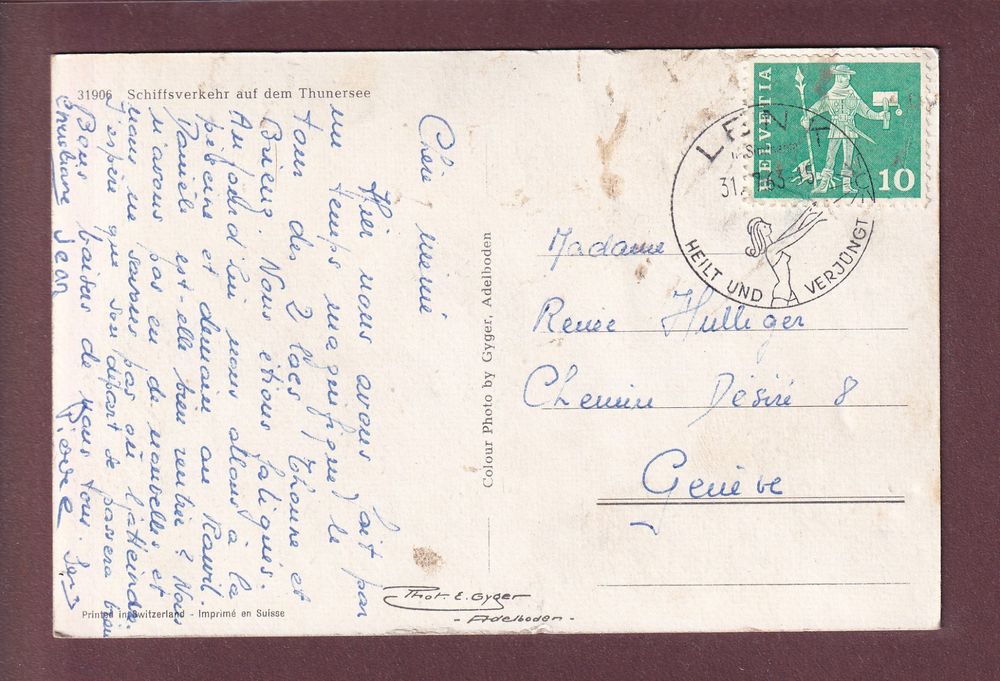 31906 Schiffsverkehr auf dem Thunersee
Chère mémé
Hier nous avons fait par
un temps magnifique le
tour des 2 lacs, Thoune et
Brienz. Nous étions fatigués.
Aujourd'hui nous allons à la
piscine et demain au Rawil.
Danièle est-elle bien rentrée? Nous
n'avons pas eu de nouvelles et
nous ne savons pas où l'atteindre.
J'espère que son départ se passera bien
Bons baisers de nous tous.
Jean Pierre
Colour Photo by Gyger, Adelboden
Phot. E. Gyger
- Adelboden -
Printed in Switzerland - Imprimé en Suisse
HELVETIA
10
LENK
31. 63-15
HEILT UND VERJÜNGT
Madame
Renée Hulliger
Chemin Désiré 8
Genève